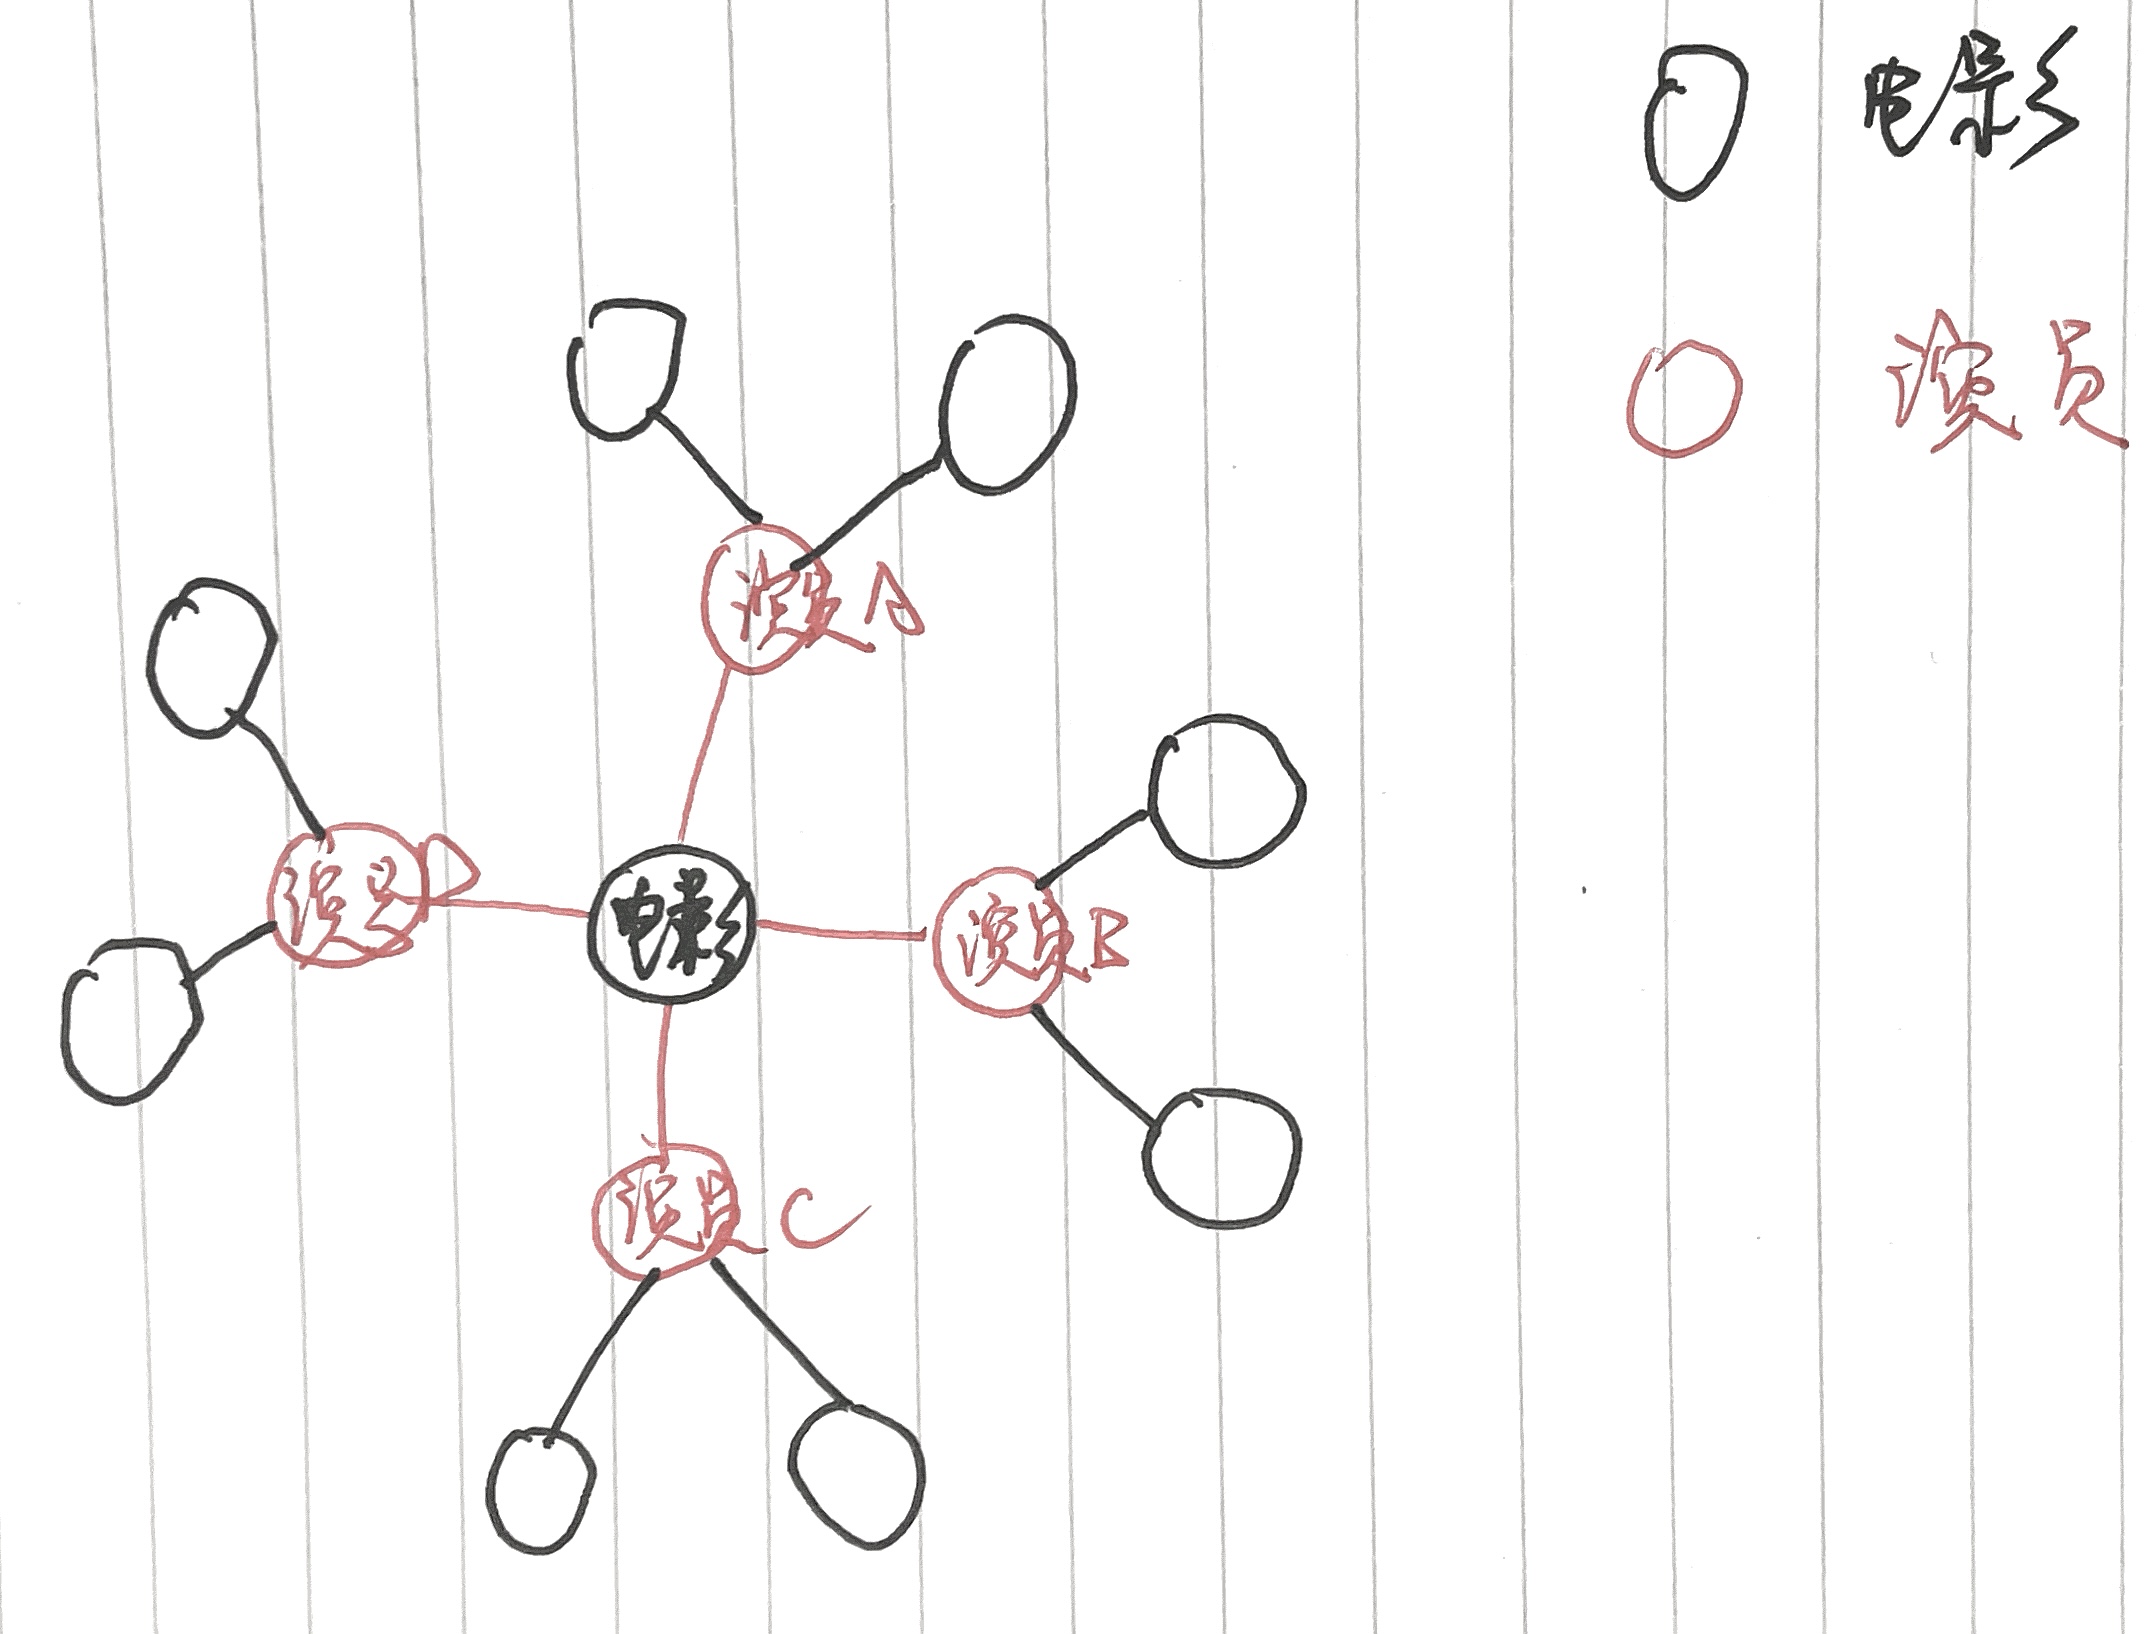 电影
演员
演员A
演员D
电影
演员B
演员C